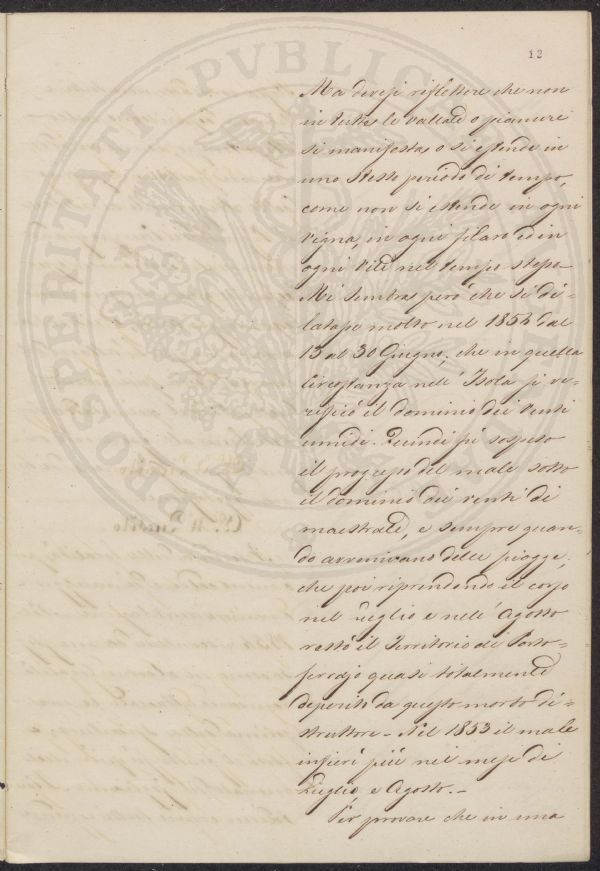 PROSPERITATI PVBLICAE
12
Ma devesi riflettere che non
in tutte le vallate o pianure
si manifesta, o si estende in
uno stesso periodo di tempo,
come non si estende in ogni
vigna, in ogni filaro ed in
ogni vite nel tempo stesso
Mi sembra però che si di-
latasse molto nel 1854 dal
15 al 30 Giugno, che in quella
circostanza nell' Isola si ve-
rificò il dominio dei venti
umidi. Quindi fu sospeso
il progresso del male sotto
il dominio dei venti di
maestrale, e sempre quan-
do avvenivano delle piogge;
che poi riprendendo il corso
nel Luglio e nell' Agosto
restò il Territorio di Porto-
ferrajo quasi totalmente
deperito da questo morbo di-
struttore - Nel 1853 il male
infierì più nei mesi di
Luglio, e Agosto.-
Per provare che in una